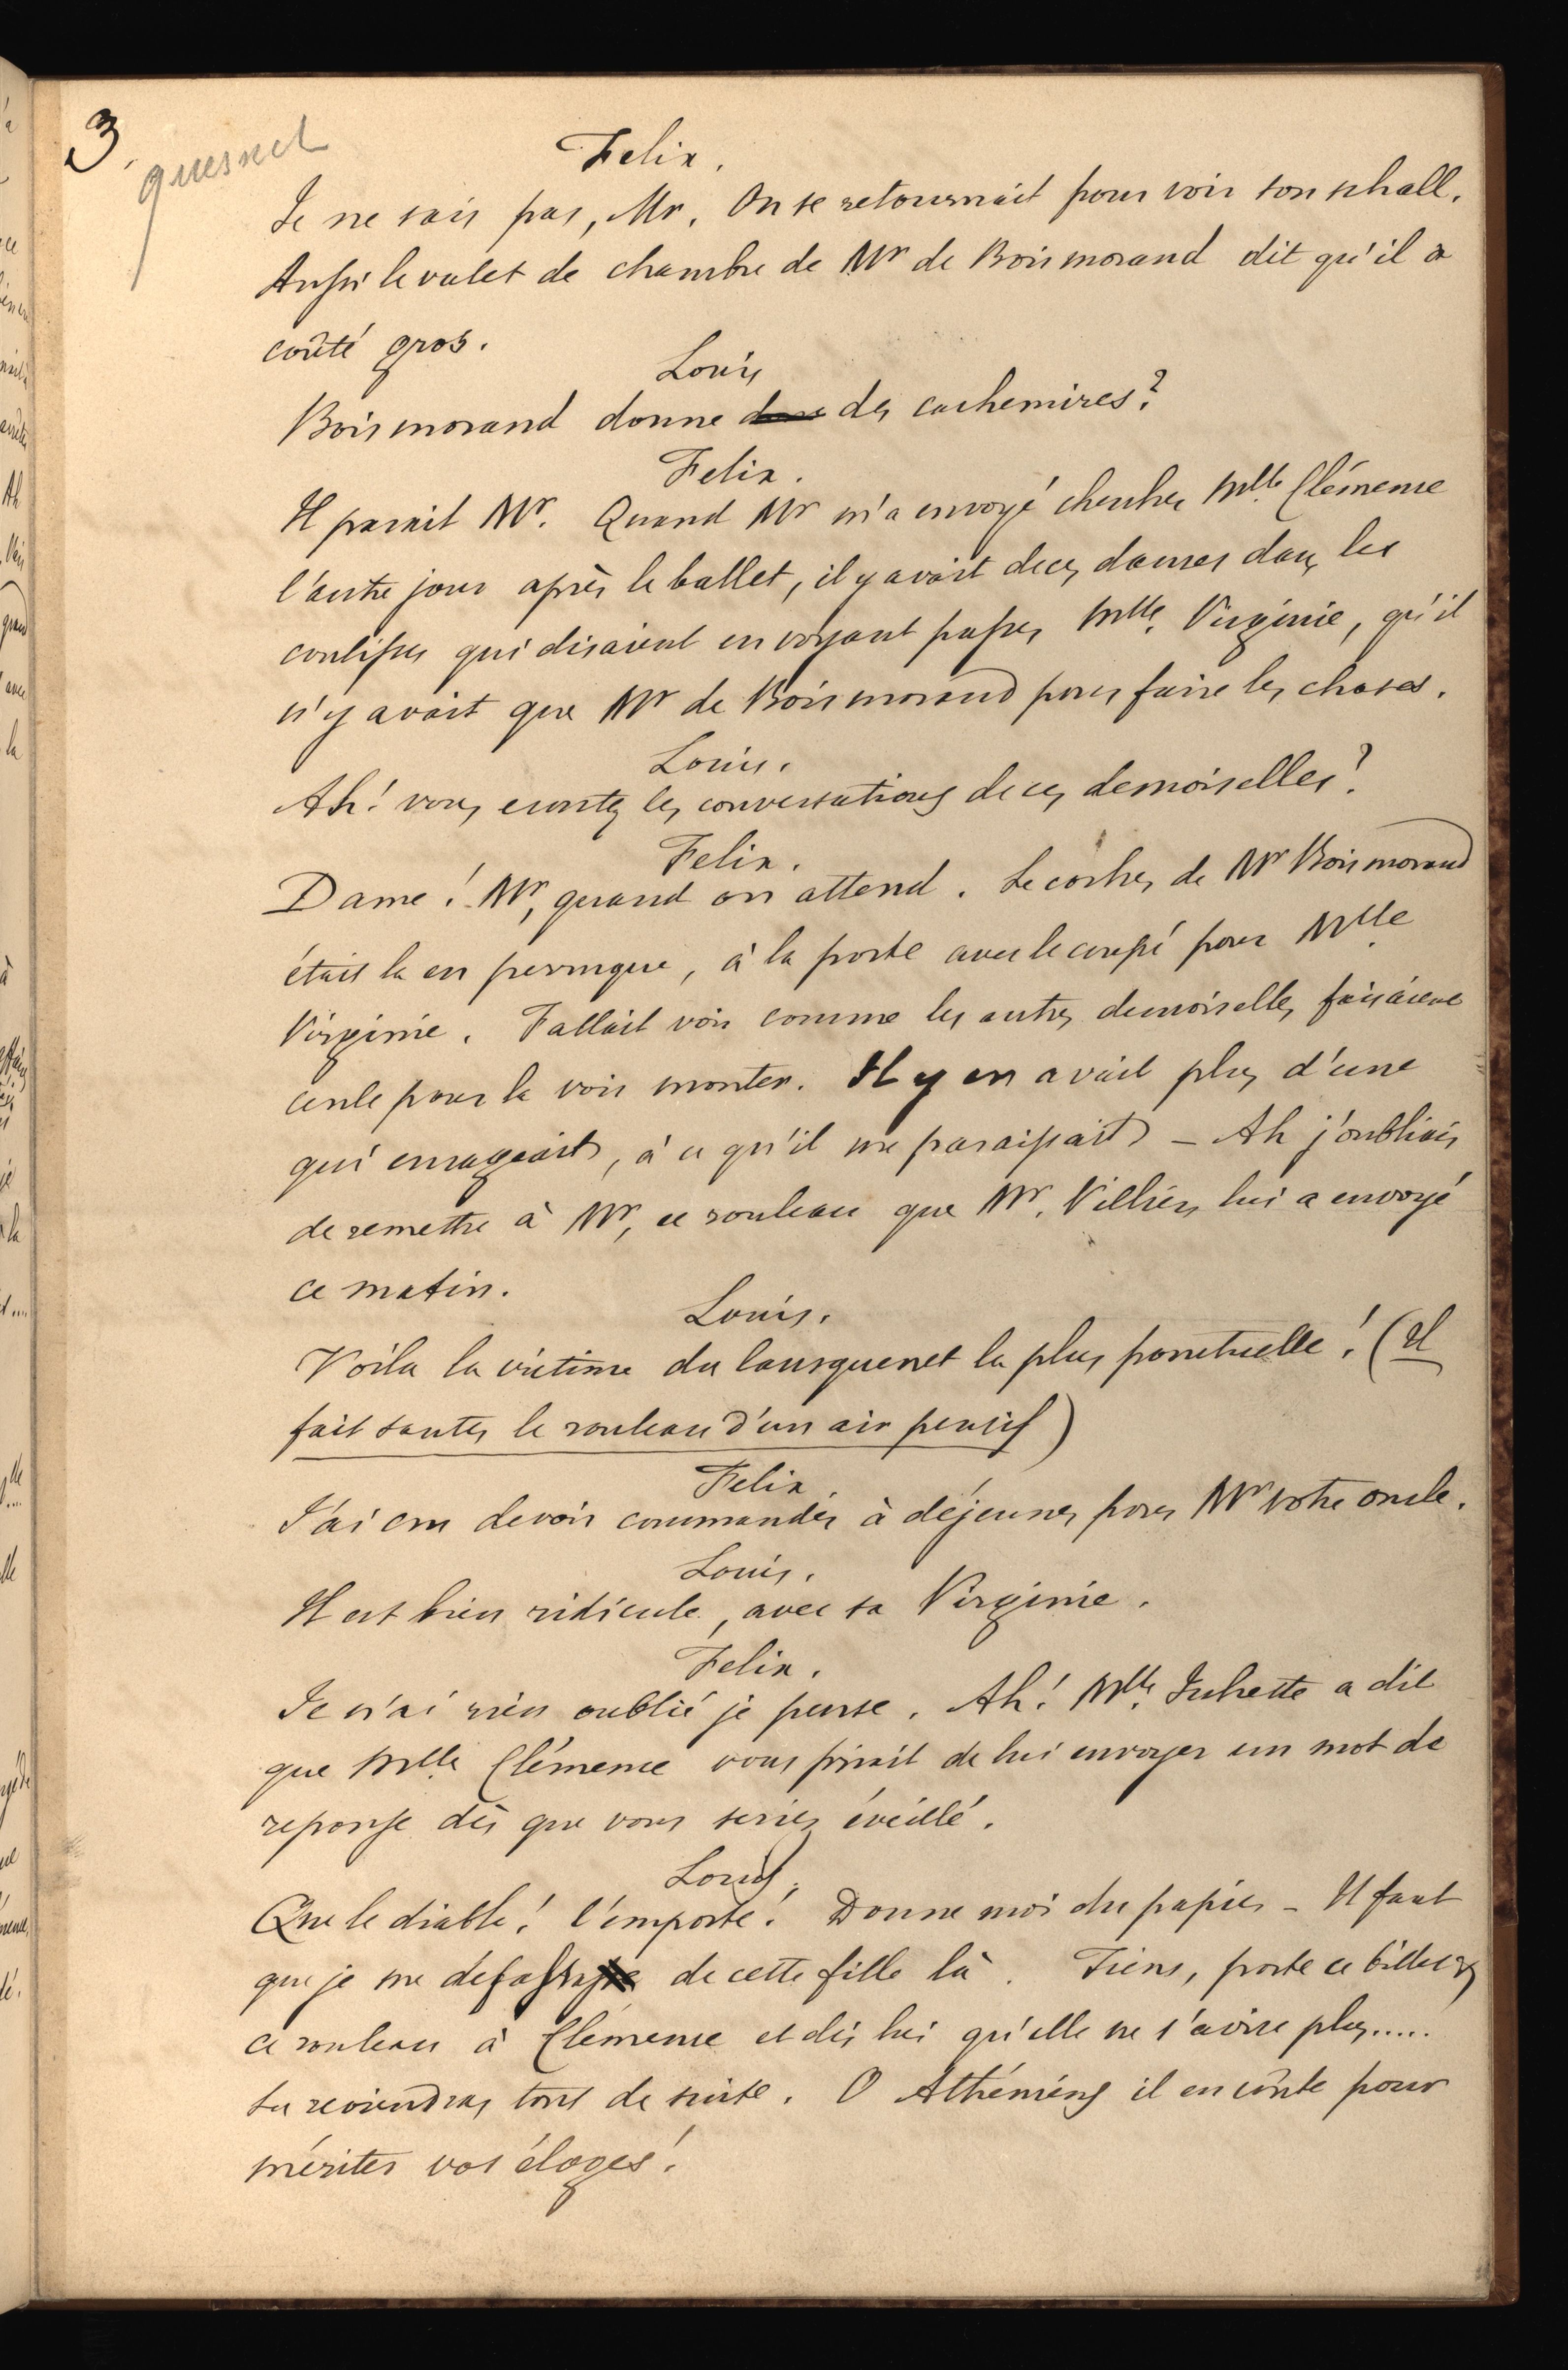 3.
quesnel
Felix.
Je ne sais pas, Mr. On se retournait pour voir son schall.
Aussi le valet de chambre de Mr de Boismorand dit qu'il a
coûté gros.
Louis
Boismorand donne des cachemires?
Felix.
Il parait Mr. Quand Mr m'a envoyé chercher Mlle Clémence
l'autre jour après le ballet, il y avait de ces dames dans les
coulisses qui disaient en voyant passer Mlle. Virginie, qu'il
n'y avait que Mr de Boismorand pour faire les choses.
Louis.
Ah! vous ecoutez les conversations de ces demoiselles?
Felix.
Dame! Mr, quand on attend. Le cocher de Mr Boismorand
était la en perruque, à la porte avec le coupé pour Mlle
Virginie. Fallait voir comme les autres demoiselles faisaient
cercle pour la voir monter. Il y en avait plus d'une
qui enrageait, à ce qu'il me paraissait – Ah j'oubliais
de remettre à Mr, ce rouleau que Mr. Villiers lui a envoyé
ce matin.
Louis.
Voila la victime du lansquenet la plus ponctuelle! (Il
fait sauter le rouleau d'un air pensif)
Felix.
J'ai cru devoir commander à déjeuner pour Mr votre oncle.
Louis.
Il est bien ridicule, avec sa Virginie.
Felix.
Je n'ai rien oublié je pense. Ah! Mlle. Juliette a dit
que Mlle. Clémence vous priait de lui envoyer un mot de
reponse dès que vous seriez éveillé.
Louis.
Que le diable! l'emporte! Donne moi du papier – Il faut
que je me de de cette fille là. Tiens, porte ce billet &
ce rouleau à Clémence et dis lui qu'elle ne s'avise plus.....
tu reviendras tout de suite. O Athénaïs il en coûte pour
mériter vos éloges!